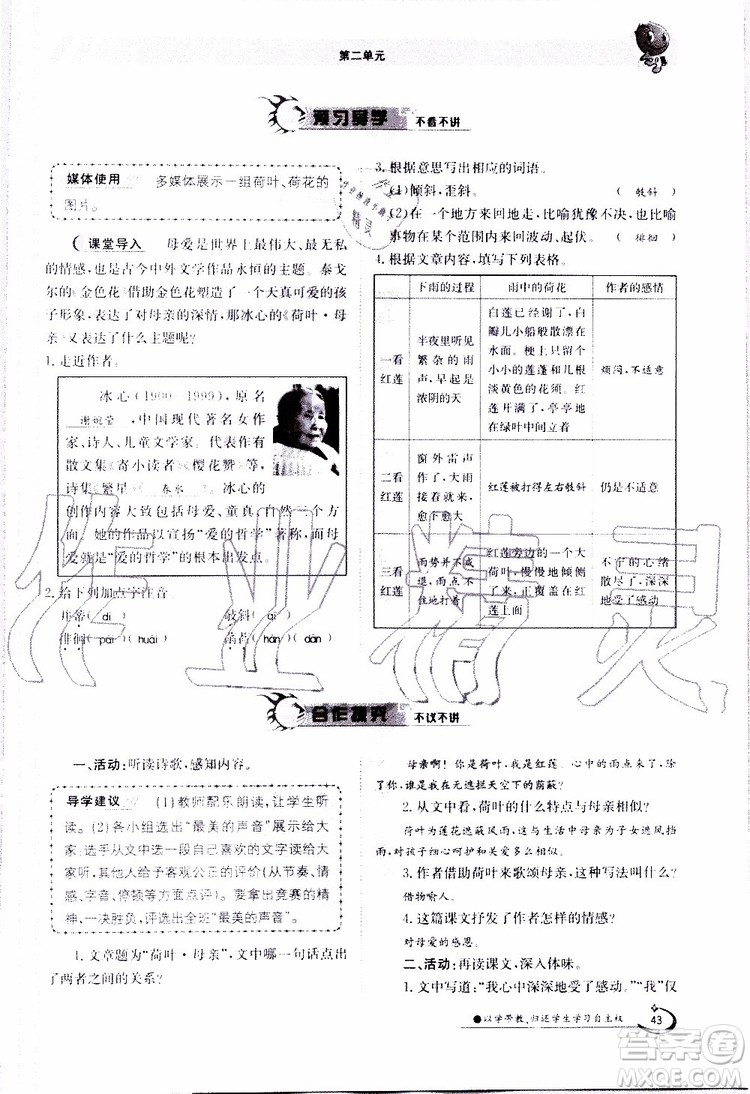 第二单元
预习导学 不看不讲
媒体使用 多媒体展示一组荷叶、荷花的
图片。
课堂导入 母爱是世界上最伟大、最无私
的情感,也是古今中外文学作品永恒的主题。泰戈
尔的《金色花》借助金色花塑造了一个天真可爱的孩
子形象,表达了对母亲的深情,那冰心的《荷叶·母
亲》又表达了什么主题呢?
1.走近作者。
冰心(1900—1999),原名
谢婉莹,中国现代著名女作
家、诗人、儿童文学家。代表作有
散文集《寄小读者》《樱花赞》等,
诗集《繁星》《春水》。冰心的
创作内容大致包括母爱、童真、自然三个方
面。她的作品以宣扬“爱的哲学”著称,而母
爱就是“爱的哲学”的根本出发点。
2.给下列加点字注音。
并蒂(dì) 攲斜(qī)
徘徊(pái)(huái) 菡萏(hàn)(dàn)
3.根据意思写出相应的词语。
(1)倾斜,歪斜。 (攲斜)
(2)在一个地方来回地走,比喻犹像不决,也比喻
事物在某个范围内来回浮动、起伏。 (徘徊)
4.根据文章内容,填写下列表格。
下雨的过程 雨中的荷花 作者的感情
一看红莲 半夜里听见繁杂的雨声,早起是浓阴的天 白莲已经谢了,白瓣儿小船般散漂在水面。梗上只留个小小的莲蓬和几根淡黄色的花须。红莲开满了,亭亭地在绿叶中间立着 烦闷,不适意
二看红莲 窗外雷声作了,大雨接着就来,愈下愈大 红莲被打得左右攲斜 仍是不适意
三看红莲 雨势并不减退,雨点不住地打着 红莲旁边的一个大荷叶,慢慢地倾侧了来,正覆盖在红莲上面 不宁的心绪散尽了,深深地受了感动
合作探究 不议不讲
一、活动:听读诗歌,感知内容。
导学建议 (1)教师配乐朗读,让学生听
读。(2)各小组选出“最美的声音”展示给大
家:选手从文中选一段自己喜欢的文字读给大
家听,其他人给予客观公正的评价(从节奏、情
感、字音、停顿等方面)。要拿出竞赛的精
神,一决胜负,评选出全班“最美的声音”。
1.文章题为“荷叶·母亲”,文中哪一句话点出
了两者之间的关系?
母亲啊!你是荷叶,我是红莲。心中的雨点来了,除
了你,谁是我在无遮拦天空下的荫蔽?
2.从文中看,荷叶的什么特点与母亲相似?
荷叶为莲花遮蔽风雨,这与生活中母亲为子女遮风挡
雨,对孩子细心呵护和关爱多么相似。
3.作者借助荷叶来歌颂母亲,这种写法叫什么?
借物喻人。
4.这篇课文抒发了作者怎样的情感?
对母爱的感恩。
二、活动:再读课文,深入体味。
1.文中写道:“我心中深深地受了感动。”“我”仅
●以学带教、归还学生学习自主权 43
作业精灵
答案圈
MXQE.COM